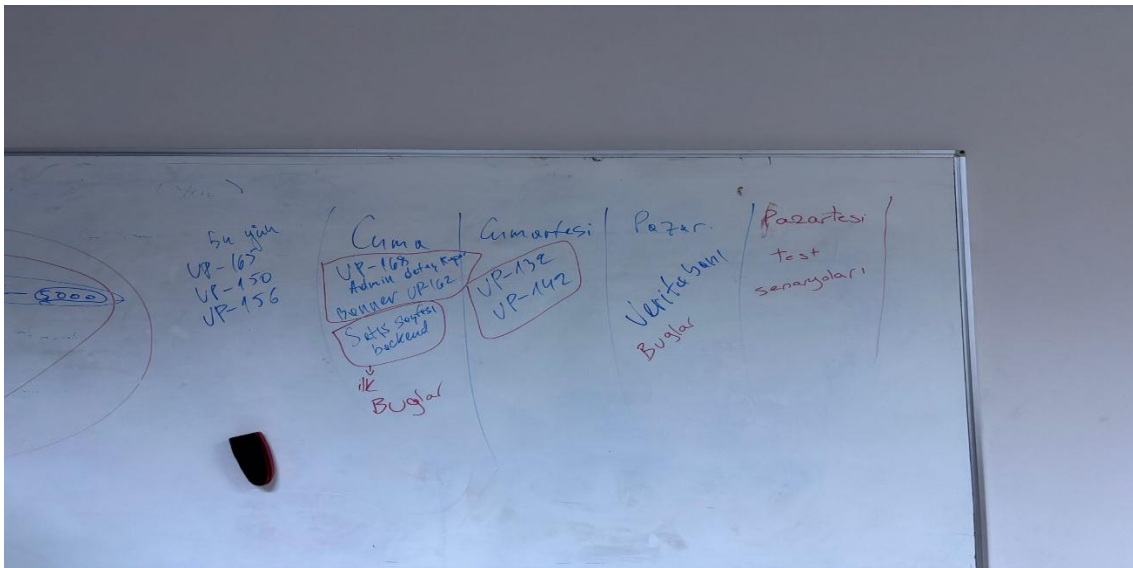 5000
Bu gün
UP-165
UP-150
UP-156
Cuma
UP-168
Admin detay
Banner UP-162
Satış sayfası
backend
ilk
Buglar
Cumartesi
UP-132
UP-142
Pazar
Veritabanı
Buglar
Pazartesi
test
senaryoları